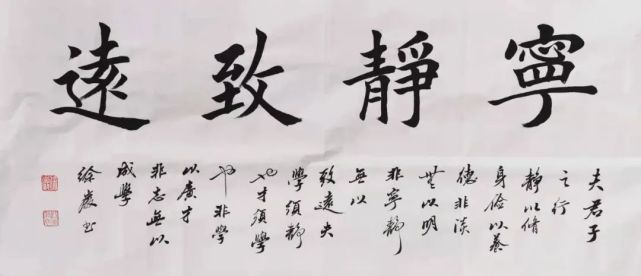 寧靜致遠
夫君子
之行
靜以脩
身儉以養
德非淡
無以明
非寧靜
無以
致遠夫
學須靜
也才須學
也非學
以廣才
非志無以
成學
徐 书